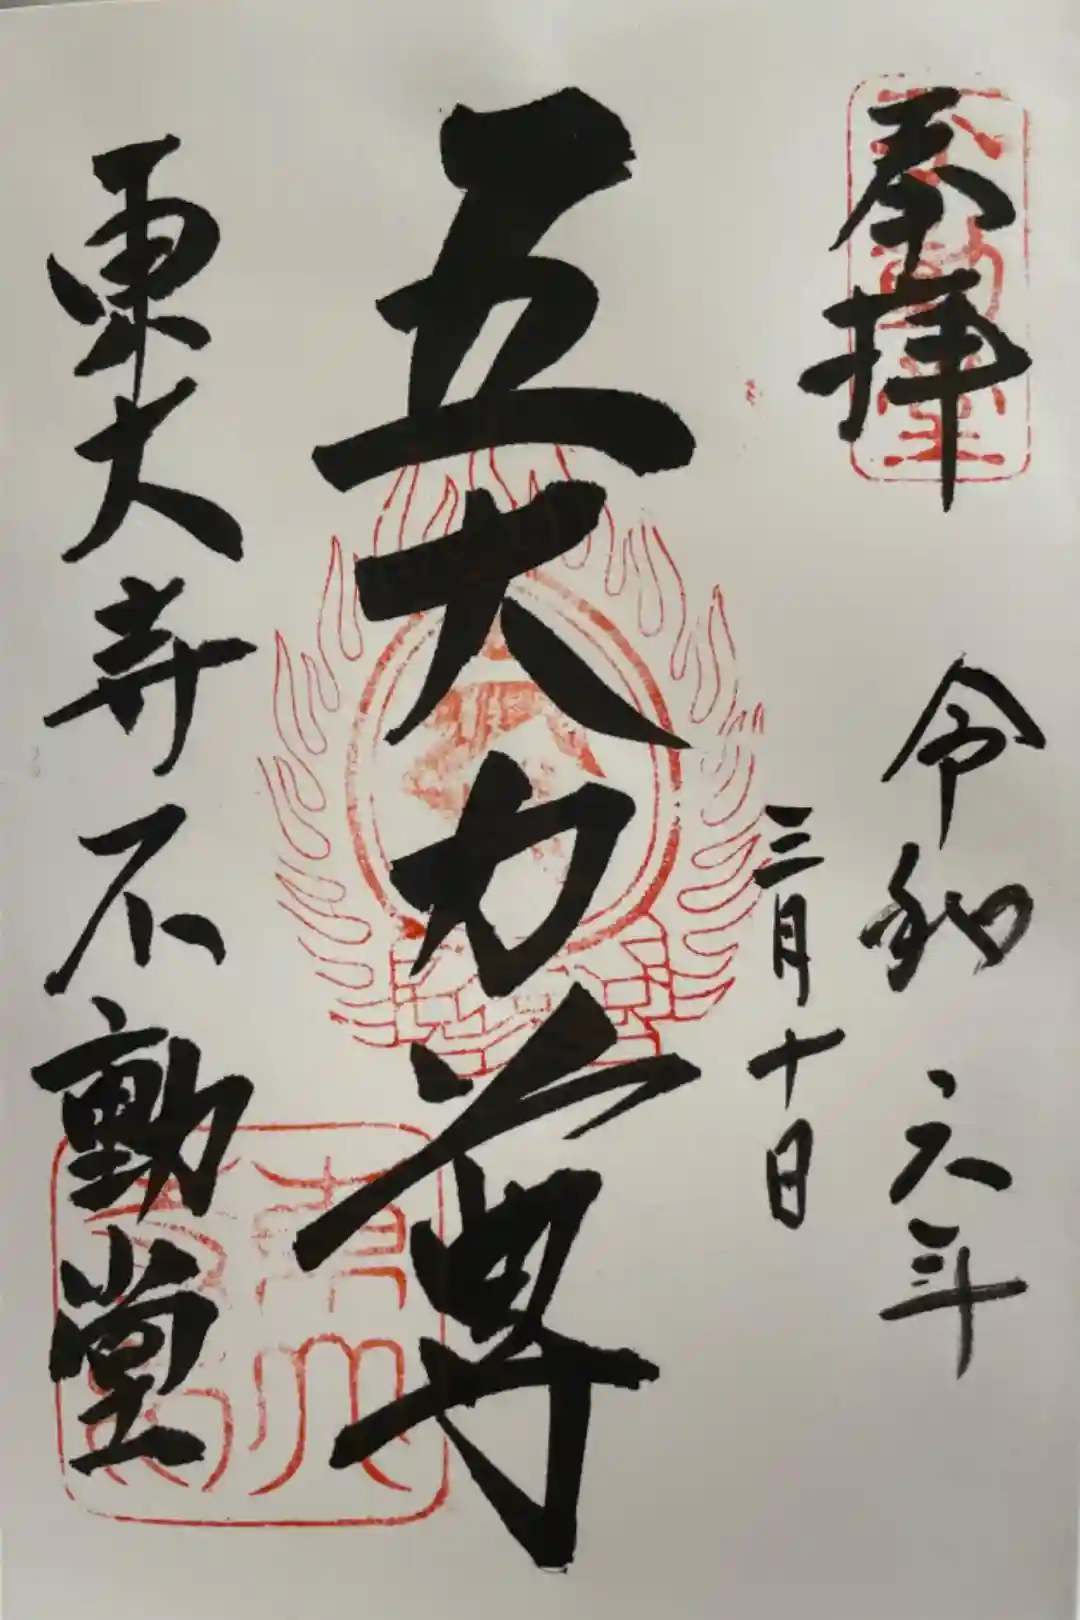 奉拝
令和六年
三月十日
五大力尊
東大寺不動堂